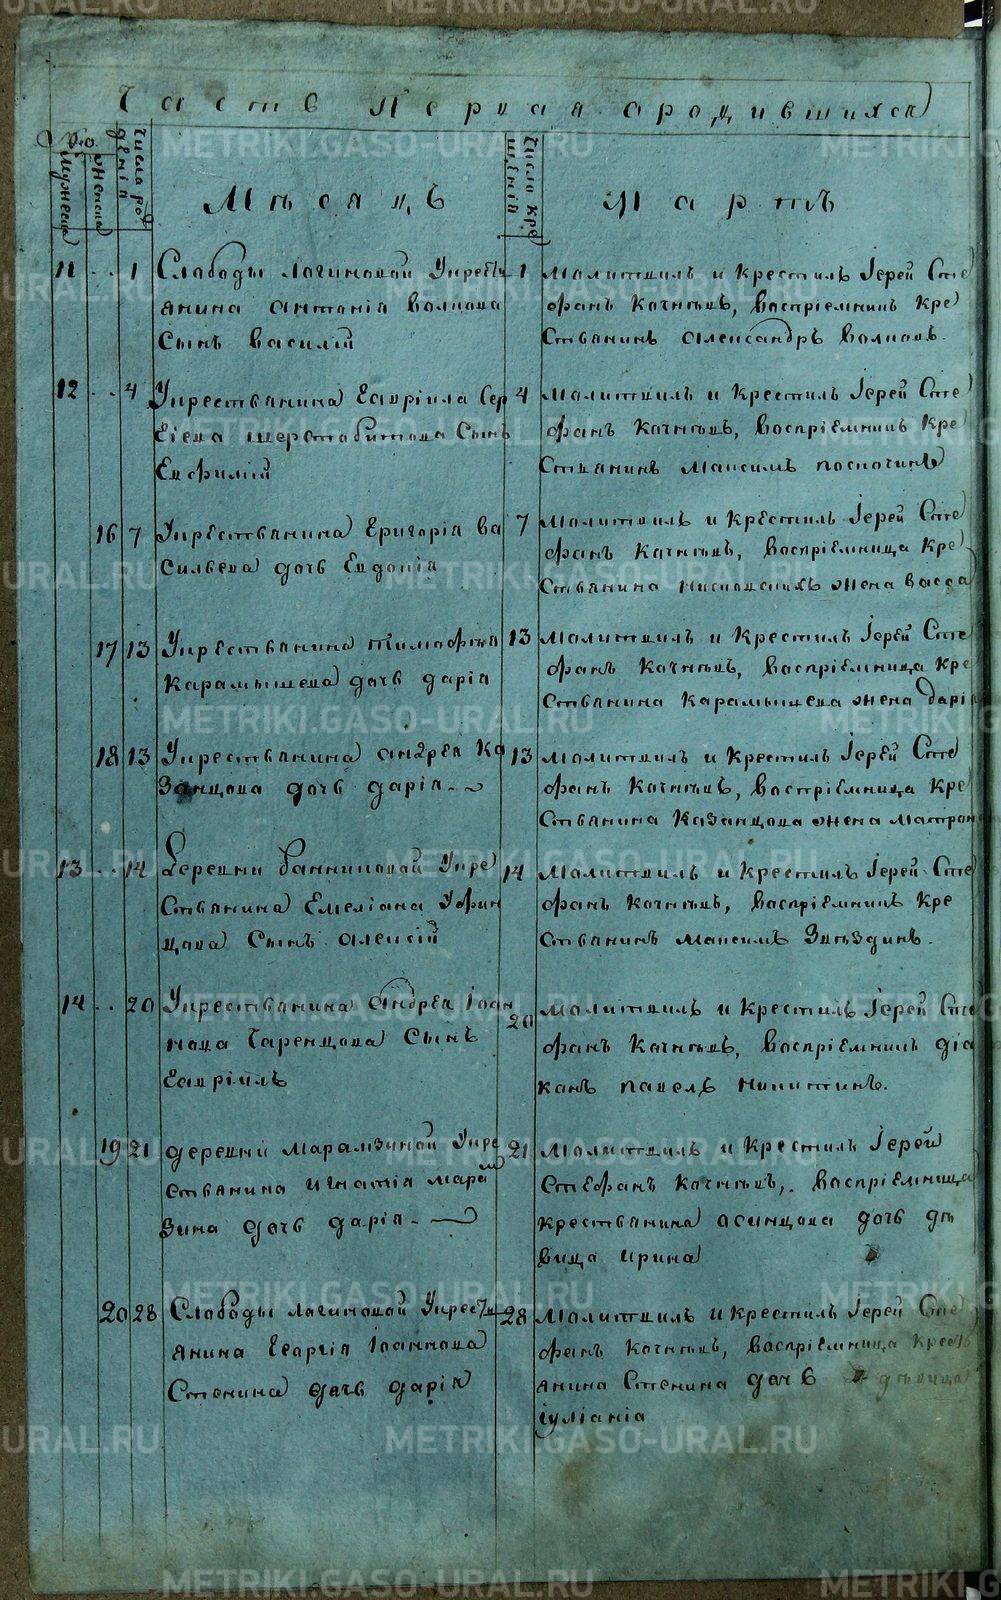 Часть Первая о родившихся
No
Мужеска
Женска
Число рождения
Месяцъ
Число крещения
Мартъ
11 .. 1 Слободы Логиновой У крестьянина Антонія Волкова Сынъ Василій
1 Молитвилъ и Крестилъ Іерей Сте
фанъ Кочнѣвъ, Воспріемникъ Кре
Стьянинъ Александръ Волковъ.
12 .. 4 У крестьянина Гавріила Сер
Гіева Шерстобитова Сынъ
Евфимій
4 Молитвилъ и Крестилъ Іерей Сте
фанъ Кочнѣвъ, Воспріемникъ Кре
Стьянинъ Максимъ
16 7 У крестьянина Григорія Ва
Сильева дочь Евдокія
7 Молитвилъ и Крестилъ Іерей Сте
фанъ Кочнѣвъ, Воспріемница Кре
Стьянина жена Васса
17 13 У крестьянина Тимофея
Карамышева дочь Дарія
13 Молитвилъ и Крестилъ Іерей Сте
фанъ Кочнѣвъ, Воспріемница Кре
Стьянина Карамышева жена Дарія
18 13 У крестьянина Андрея Ка
Занцова дочь Дарія
13 Молитвилъ и Крестилъ Іерей Сте
фанъ Кочнѣвъ, Воспріемница Кре
Стьянина Казанцова жена Матрона
13 .. 14 Деревни Банниковой У кре
Стьянина Емеліана Уфин
цова Сынъ Алексій
14 Молитвилъ и Крестилъ Іерей Сте
фанъ Кочнѣвъ, Воспріемникъ Кре
Стьянинъ Максимъ Звѣздинъ.
14 .. 20 У крестьянина Андрея Іоан
нова Сынъ
Гавріилъ
20 Молитвилъ и Крестилъ Іерей Сте
фанъ Кочнѣвъ, Воспріемникъ діа
конъ Павелъ Никитинъ.
19 21 деревни Марамзиной У кре
Стьянина Игнатія Марам
Зина дочь Дарія
21 Молитвилъ и Крестилъ Іерей
Стефанъ Кочнѣвъ, Воспріемница
Крестьянина Осинцова дочь дѣ
вица Ирина
20 28 Слободы Логиновой У кресть
янина Георгія Іоаннова
Стенина дочь Дарія
28 Молитвилъ и Крестилъ Іерей Сте
фанъ Кочнѣвъ, Воспріемница Кресть
янина Стенина дочь дѣвица
Іуліанія
METRIKI.GASO-URAL.RU